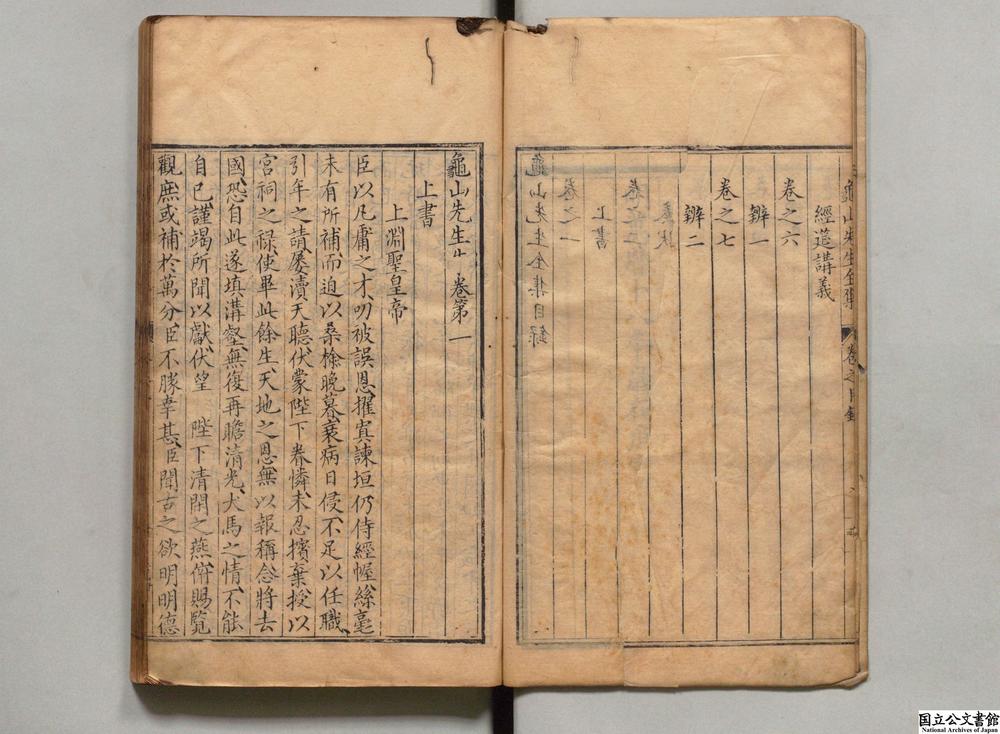 經筵講義
卷之六
辨一
卷之七
辨二
龜山先生全集目錄
龜山先生 卷第一
上書
上淵聖皇帝
臣以凡庸之才、叨被誤恩、擢寘諫垣、仍侍經幄、絲毫
未有所補、而迫以桑榆晚暮、衰病日侵、不足以任職、
引年之請、屢瀆天聽、伏蒙陛下眷憐、未忍擯棄、授以
宮祠之禄、使畢此餘生、天地之恩、無以報稱、念將去
國、恐自此遂填溝壑、無復再瞻清光、犬馬之情、不能
自已、謹竭所聞以獻、伏望 陛下清閒之燕、俯賜覧
觀、庶或補於萬分、臣不勝幸甚、臣聞古之欲明明德
国立公文書館
National Archives of Japan